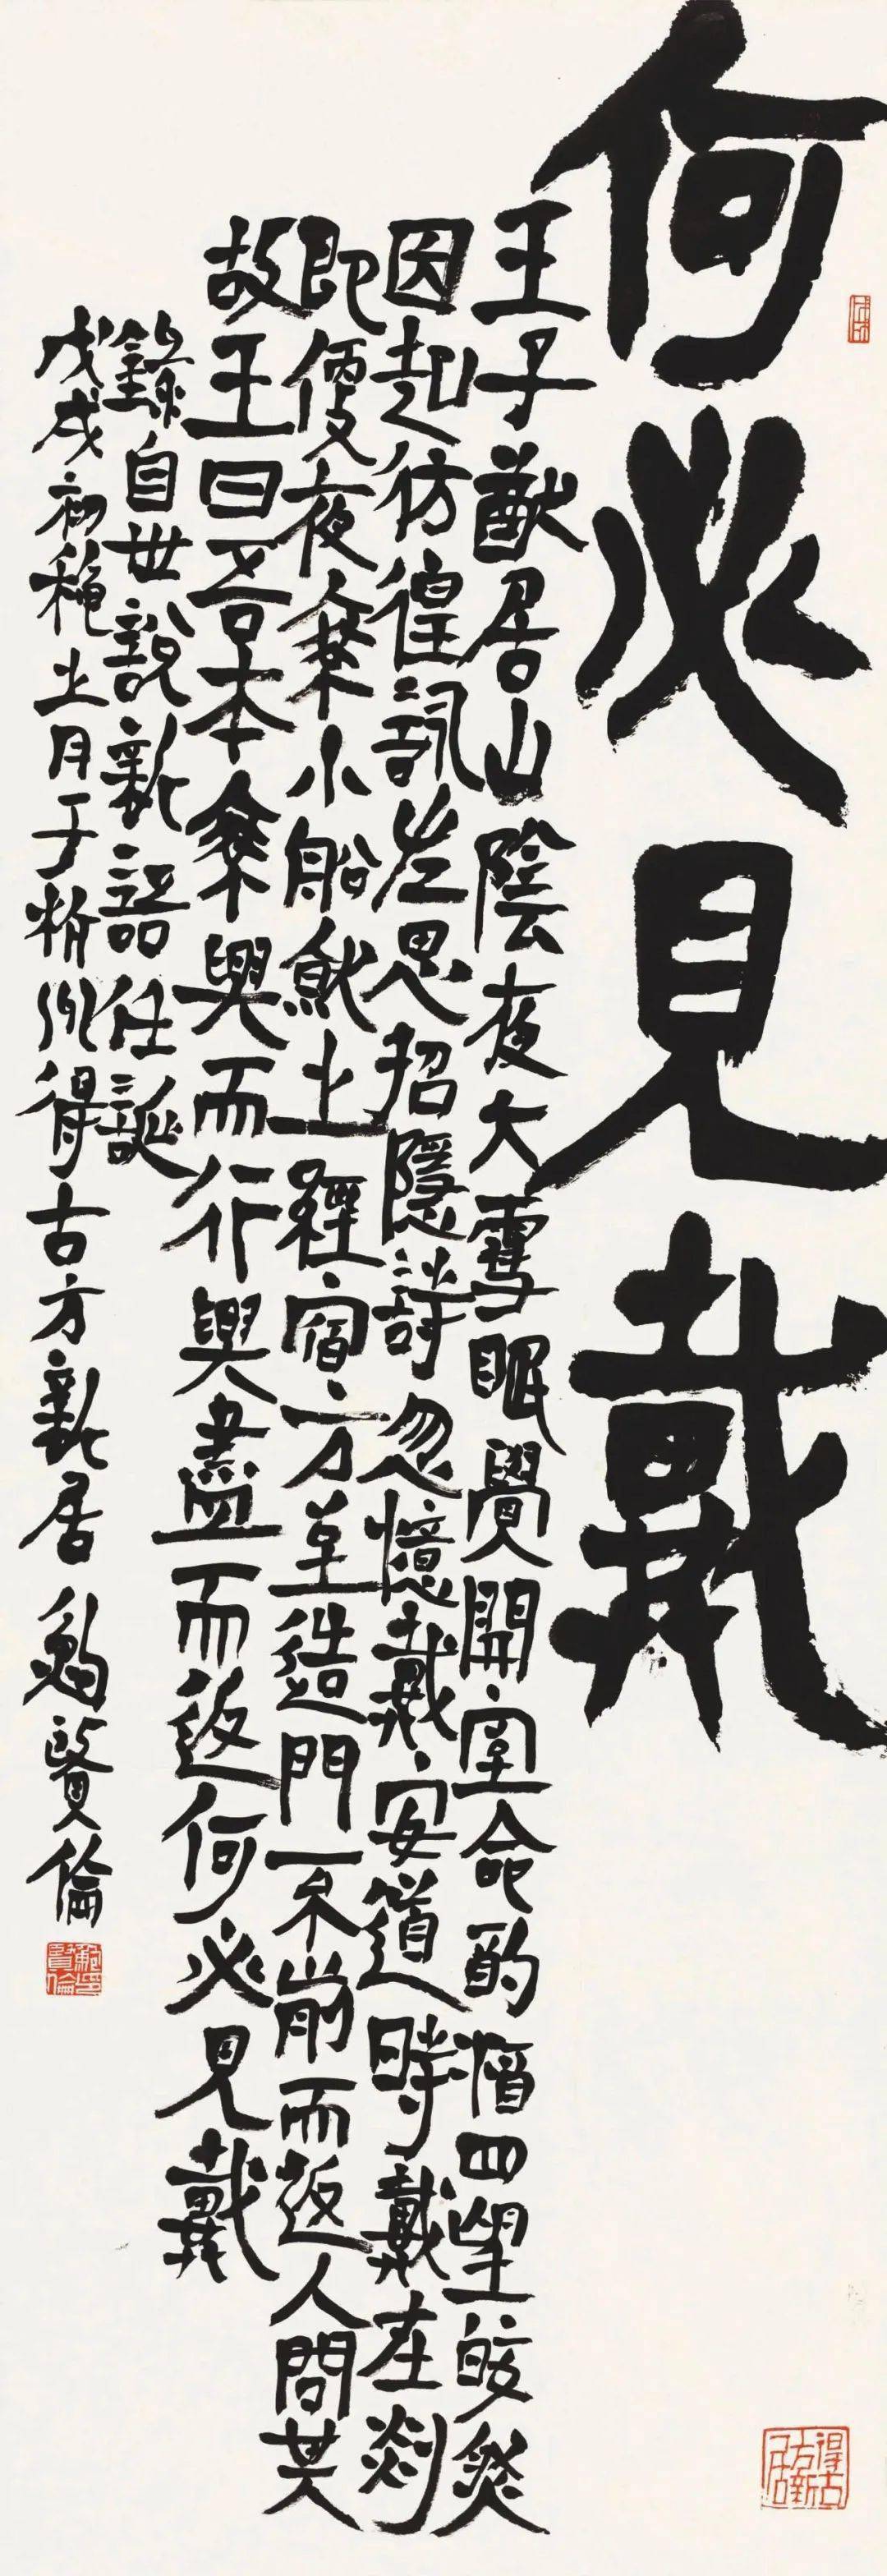 何必見戴
王子猷居山陰夜大雪眠覺開室命酌酒四望皎然
因起彷徨詠左思招隱詩忽憶戴安道時戴在剡
即便夜乘小船就之經宿方至造門不前而返人問其
故王曰吾本乘興而行興盡而返何必見戴
錄自世說新語任誕
戊戌初穐之月于州得古方新居 賢倫
得古方新居